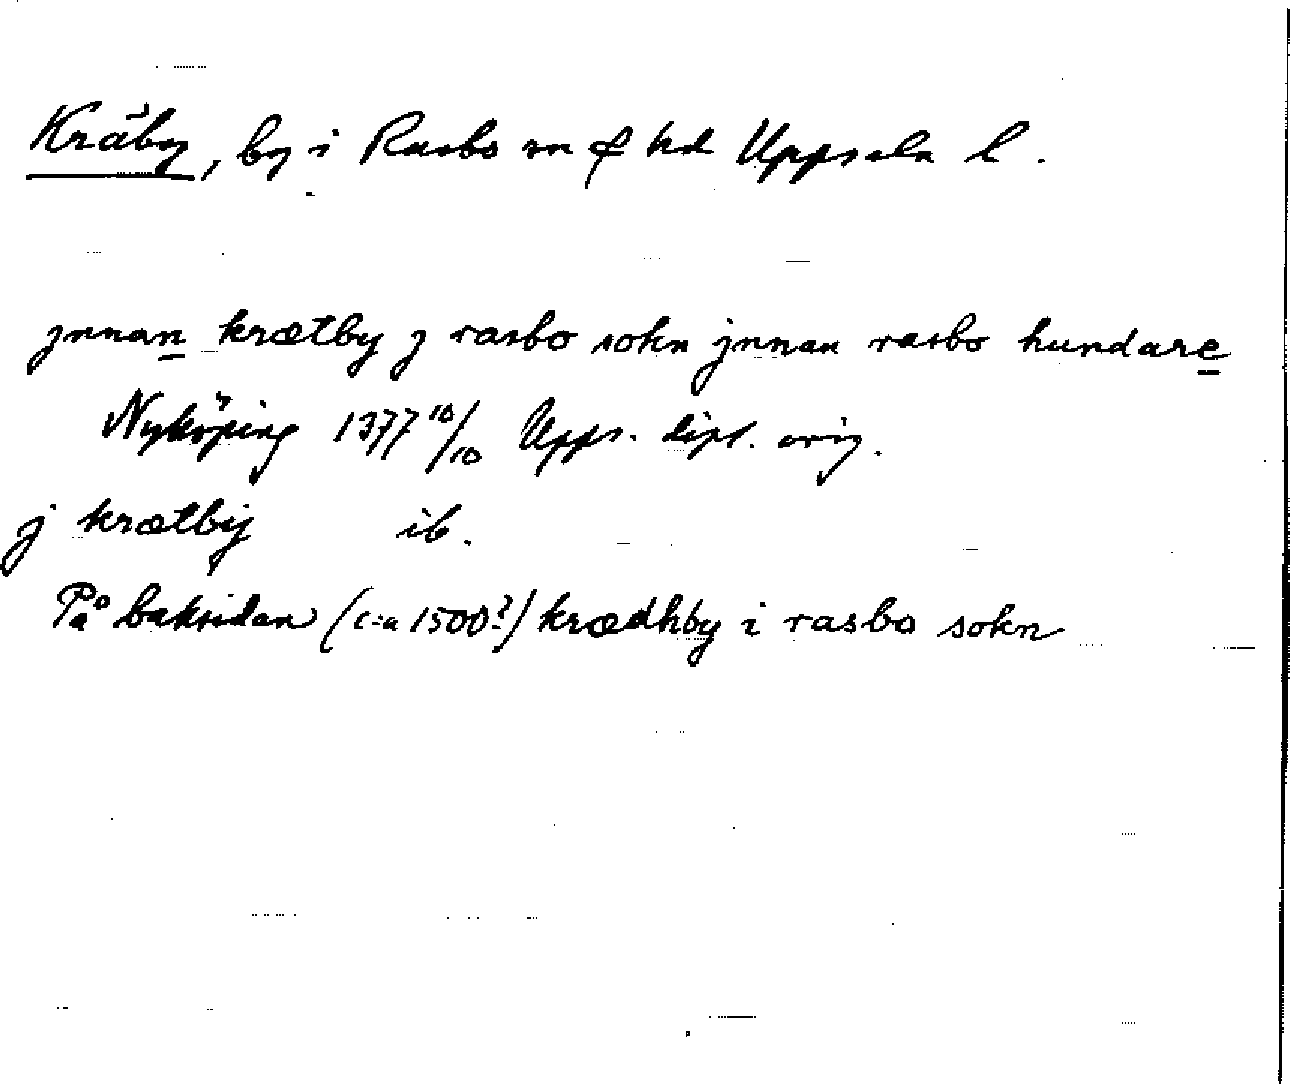 Kräby, by i Rasbo sn o hd Uppsala l.
jnnan krætby j rasbo sokn jnnan rasbo hundare
Nyköping 1377 10/10 Upps. dipl. orig.
j krætbij ib.
På baksidan (c:a 1500?) krædhby i rasbo sokn